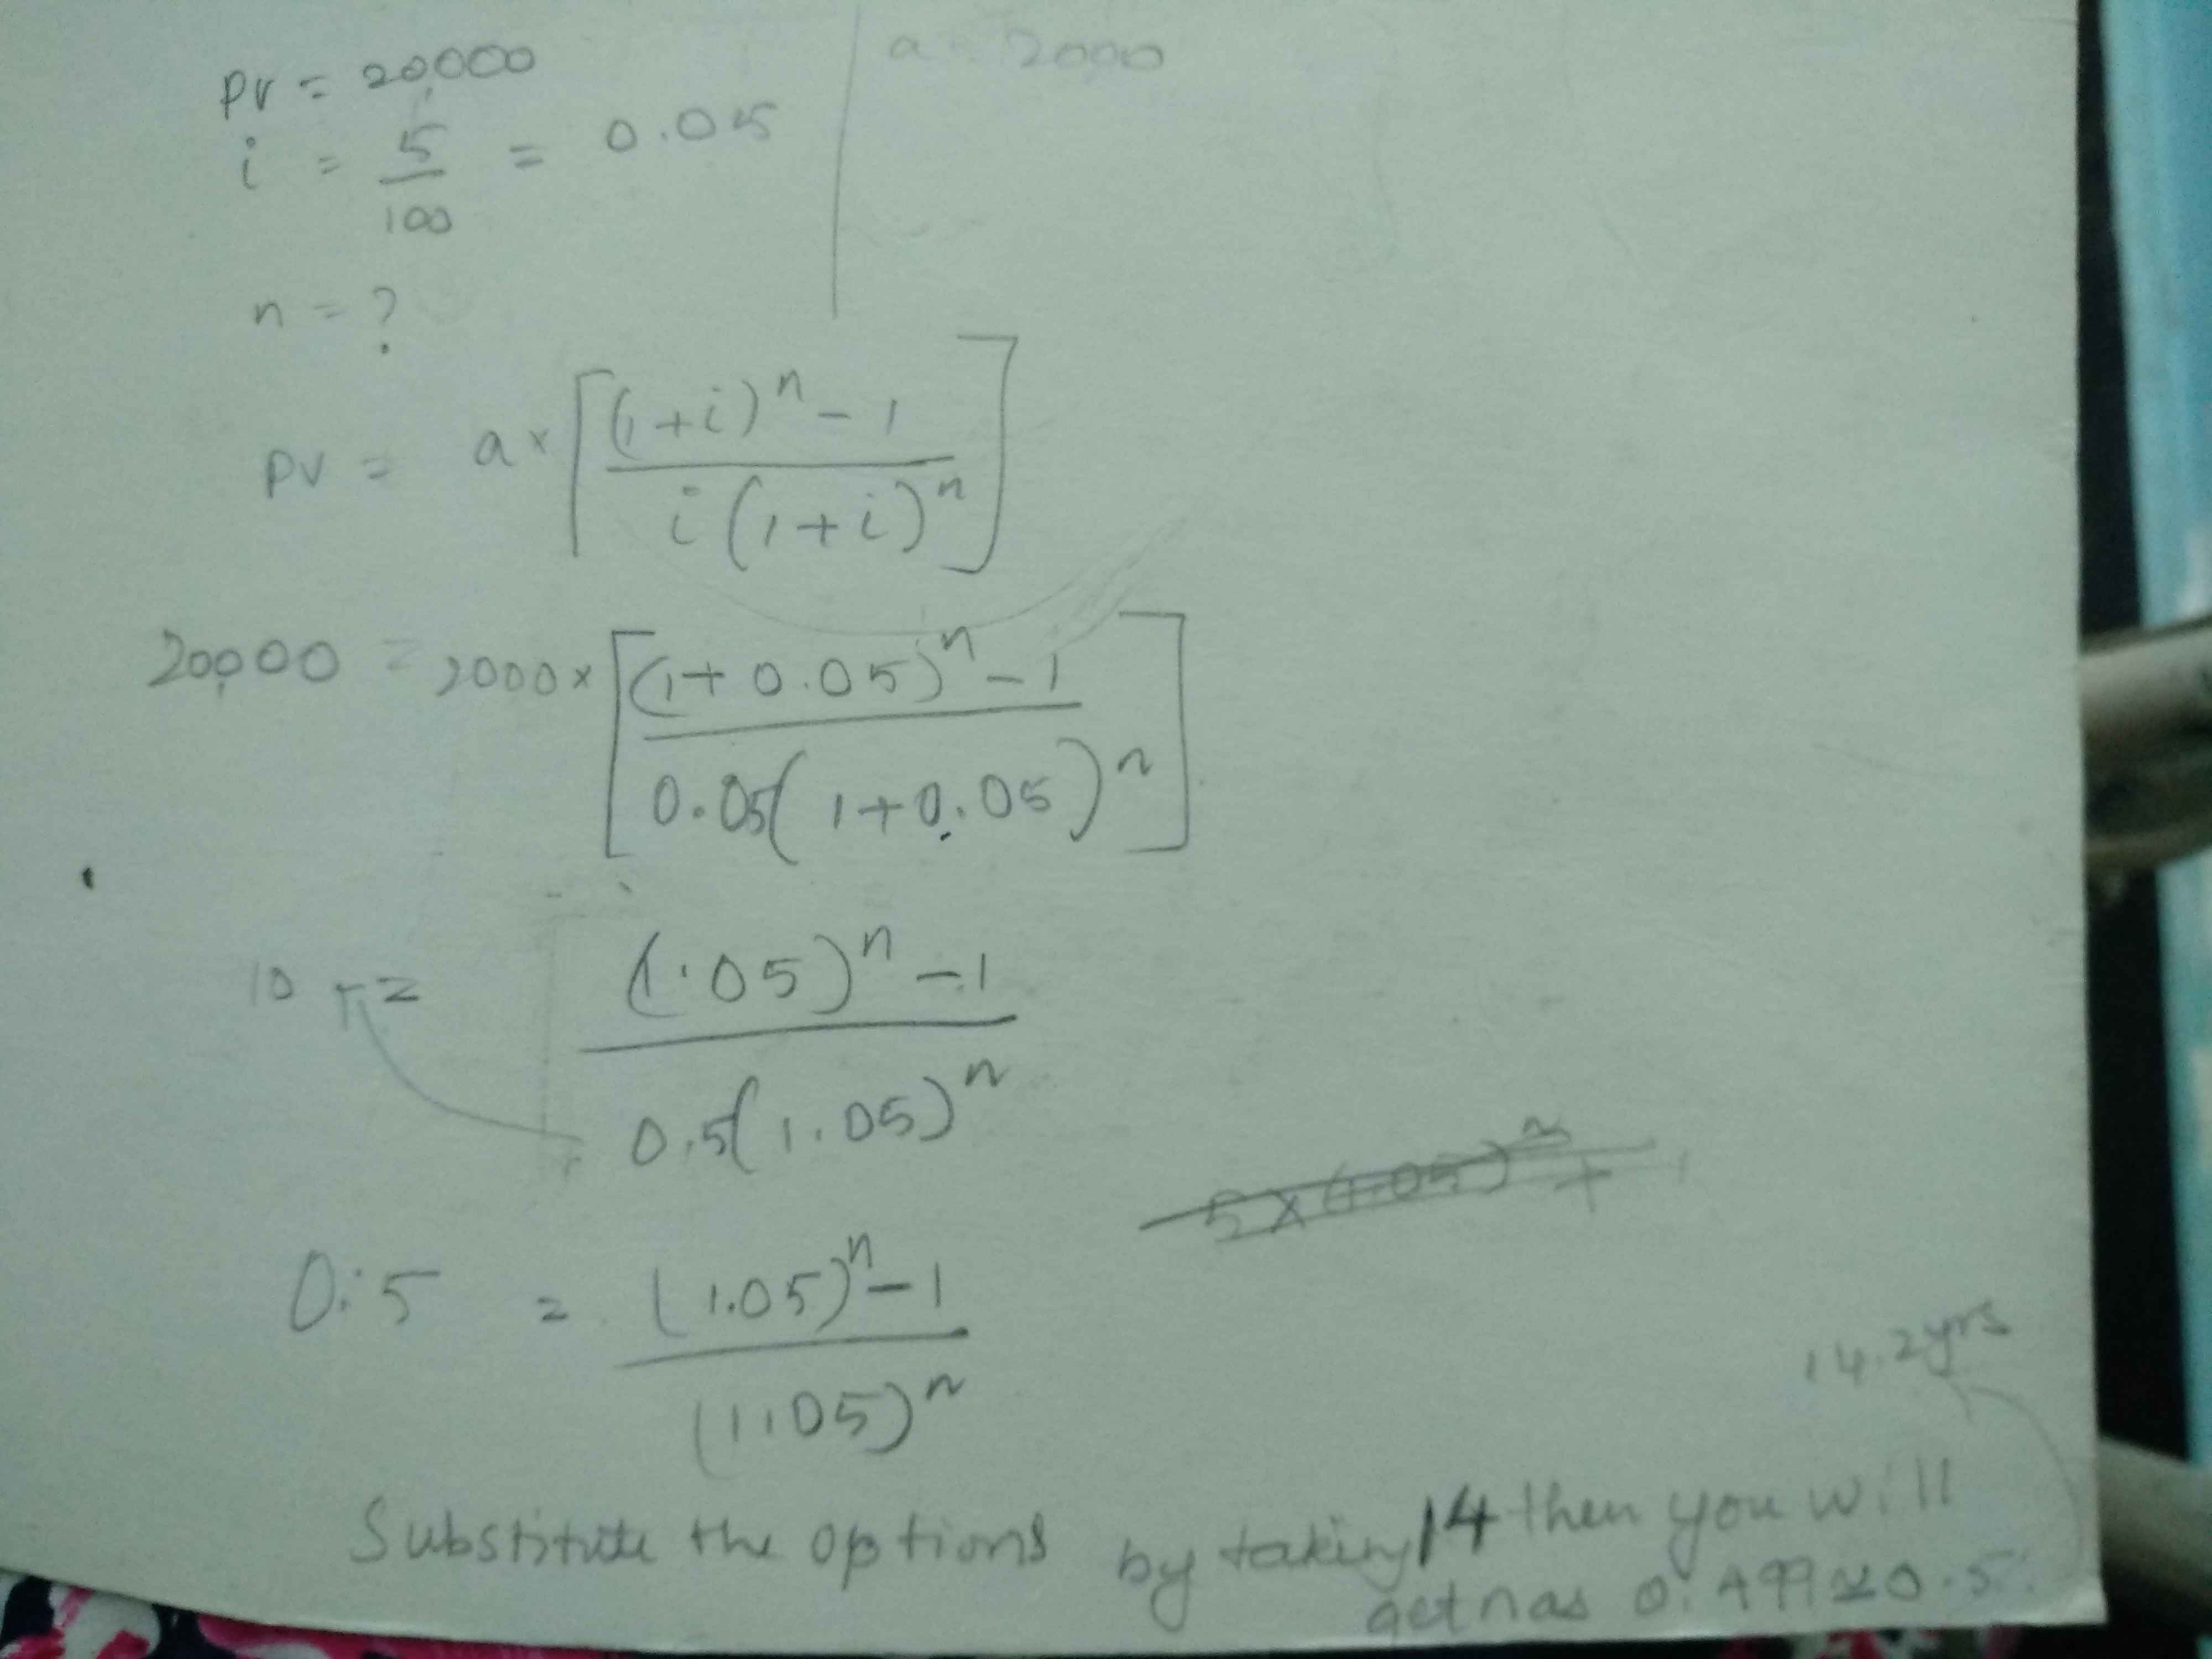 PV = 20,000
a = 2000
i = 5/100 = 0.05
n = ?
PV = a × [(1+i)^n - 1 / i(1+i)^n]
20,000 = 2000 × [(1+0.05)^n - 1 / 0.05(1+0.05)^n]
10 = (1.05)^n - 1 / 0.5(1.05)^n
5 × (1.05)^n +
0.5 = (1.05)^n - 1 / (1.05)^n
14.2yrs
Substitute the options by taking 14 then you will
get n as 0.499 ≈ 0.5